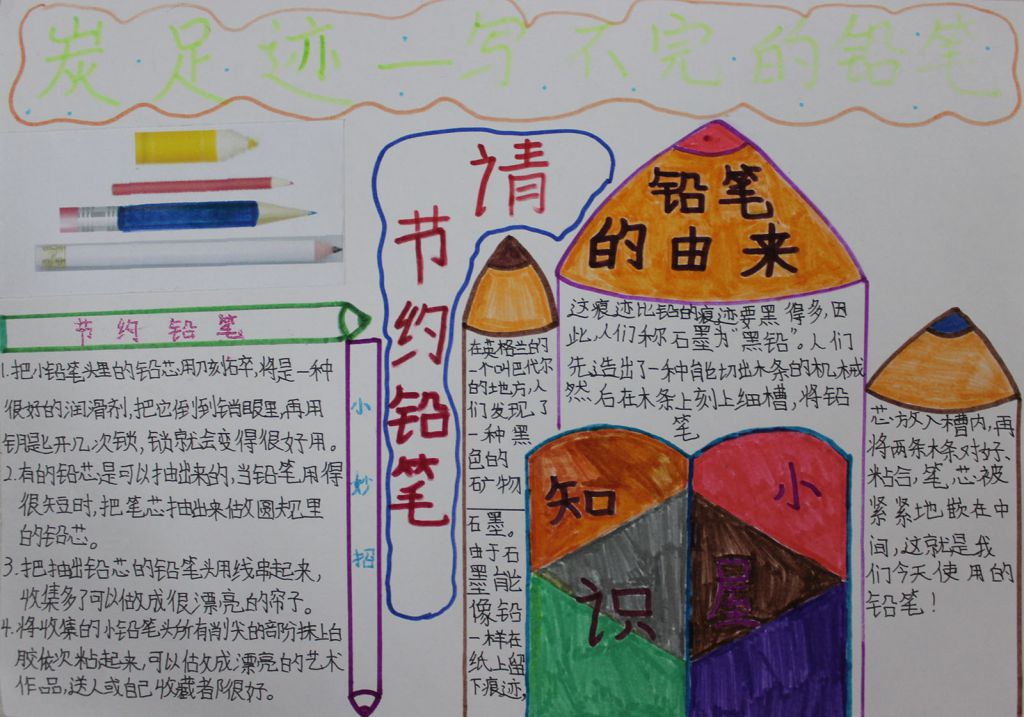 炭足迹—写不完的铅笔
节约铅笔
小妙招
1.把小铅笔头里的铅芯用刀
将是一种
很好的润滑剂,把它倒到锁眼里,再用
钥匙开几次锁,锁就会变得很好用。
2.有的铅芯是可以抽出来的,当铅笔用得
很短时,把笔芯抽出来做圆规里
的铅芯。
3.把抽出铅芯的铅笔头用线串起来,
收集多了可以做成很漂亮的帘子。
4.将收集的小铅笔头所有削尖的部阶抹上白
胶依次粘起来,可以做成漂亮的艺术
作品,送人或自己收藏者阝很好。
请
节约铅笔
铅笔
的由来
在英格兰的
一个叫巴代尔
的地方,人
们发现了
一种黑
色的
矿物
石墨。
由于石
墨能
像铅
一样在
纸上留
下痕迹,
这痕迹比铅的痕迹要黑得多,因
此,人们称石墨为“黑铅”。人们
先造出了一种能切出木条的机械
然后在木条上刻上细槽,将铅
笔
芯放入槽内,再
将两条木条对好、
粘合,笔芯被
紧紧地嵌在中
间,这就是我
们今天使用的
铅笔!
知识
小屋